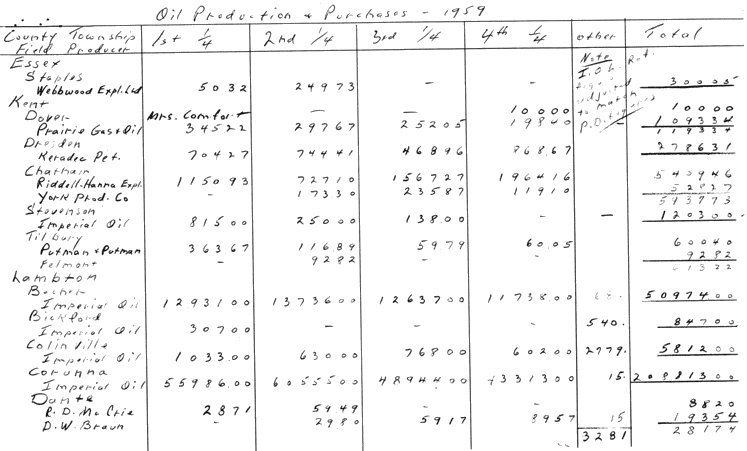 Oil Production & Purchases - 1959
County Township 1st 1/4 2nd 1/4 3rd 1/4 4th 1/4 other Total
Field Producer
Essex Note
Staples I.O.L. Ret.
Webbwood Expl. Ltd 5032 24973 - - 30005
Kent adjusted
Dover Mrs. Comfort — — 10000 to match 10000
Prairie Gas & Oil 34522 29767 25205 19840 P.O. - 109334
119334
Dresden
Keradec Pet. 70427 74441 46896 86867 278631
Chatham
Riddell-Hanna Expl. 115093 72710 156727 196416 540946
York Prod. Co - 17330 23587 11910 52827
593773
Stevenson
Imperial Oil 81500 25000 13800 - - 120300
Tilbury
Putman & Putman 36367 11689 5979 6005 60040
Felmont - 9282 - - 9282
Lambton
Imperial Oil 1293100 1373600 1263700 1173800 68. 5097400
Bickford
Imperial Oil 30700 - - - 540. 84700
Colinville
Imperial Oil 1033.00 63000 76800 60200 2779. 581200
Corunna
Imperial Oil 55986.00 6055500 4894400 4331300 15. 20881300
Dante
R. D. McCrie 2871 5949 - - 8820
D.W. Braun - 2980 5917 8957 15 19354
3281 28174